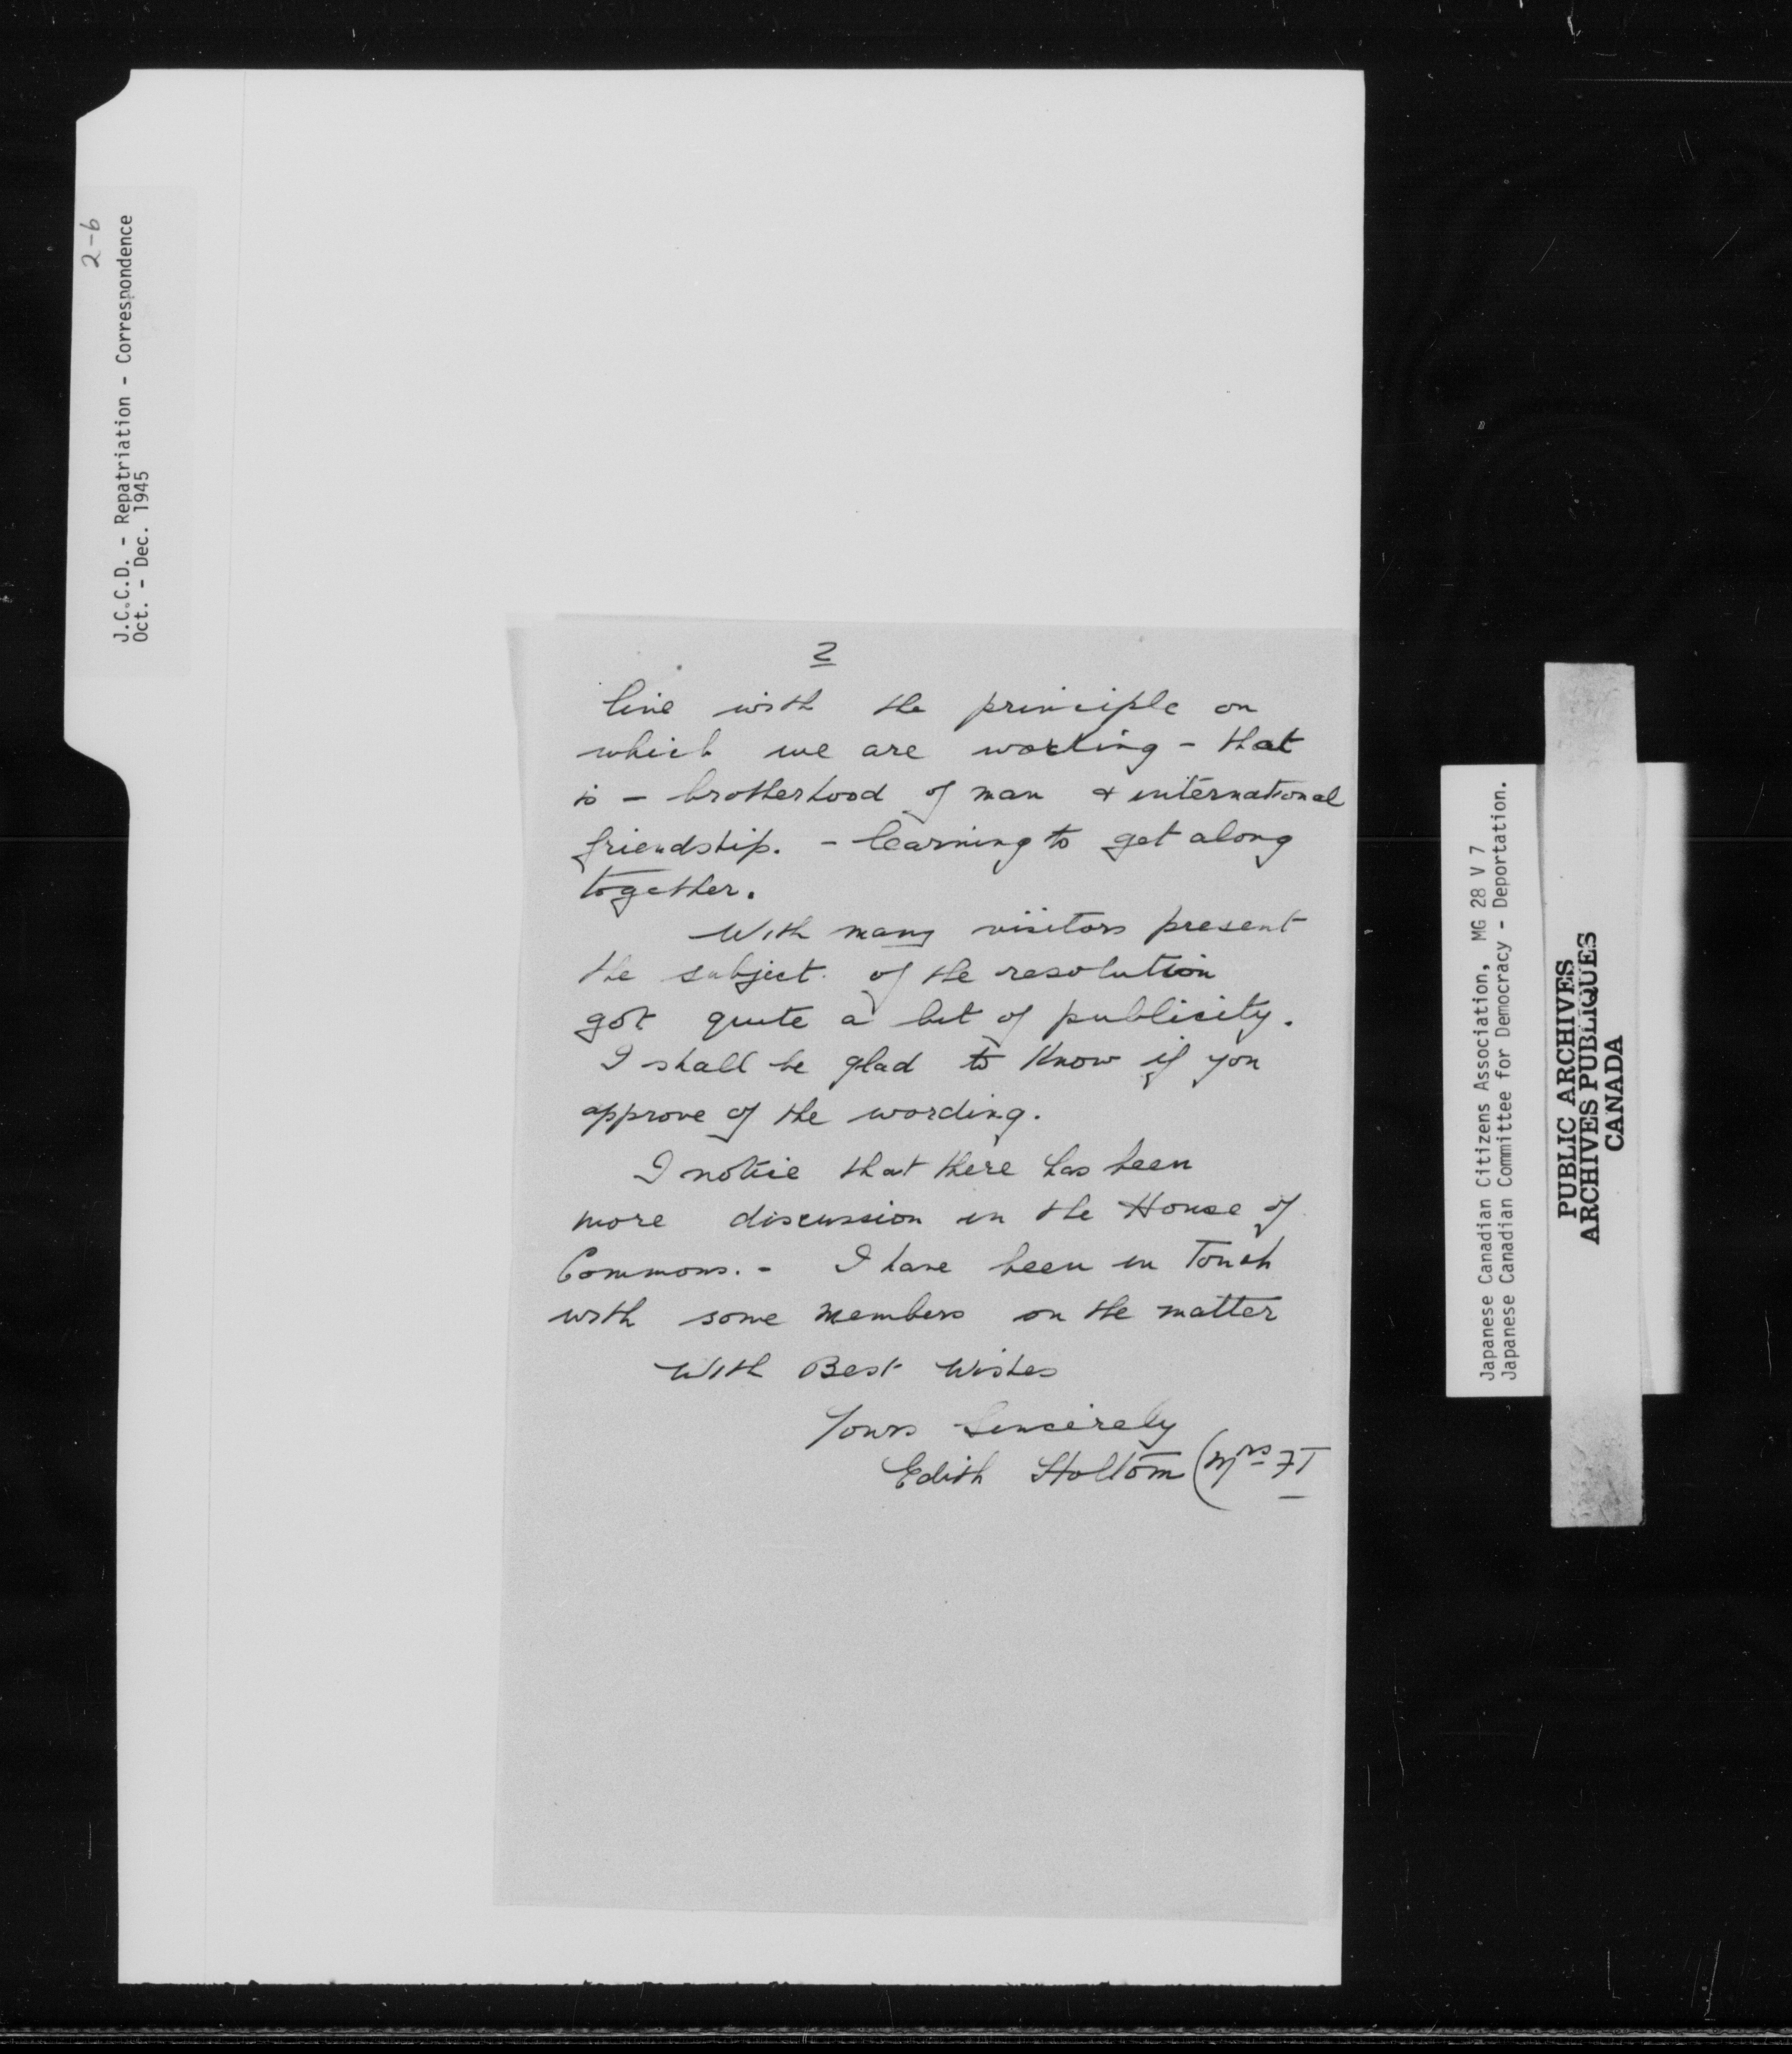 2-6
J.C.C.D. - Repatriation - Correspondence
Oct. - Dec. 1945
2
line with the principle on
which we are working - that
is - brotherhood of man & international
friendship. - learning to get along
together.
With many visitors present
the subject of the resolution
got quite a bit of publicity.
I shall be glad to know if you
approve of the wording.
I notice that there has been
more discussion in the House of
Commons. - I have been in Touch
with some members on the matter
With Best Wishes
Yours Sincerely
Edith Holtom (Mrs FT
Japanese Canadian Citizens Association, MG 28 V 7
Japanese Canadian Committee for Democracy - Deportation.
PUBLIC ARCHIVES
ARCHIVES PUBLIQUES
CANADA